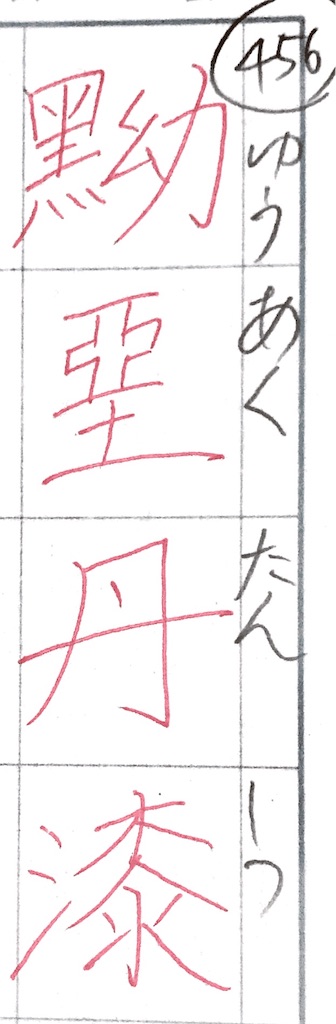 456
黝堊丹漆
ゆうあくたんしつ